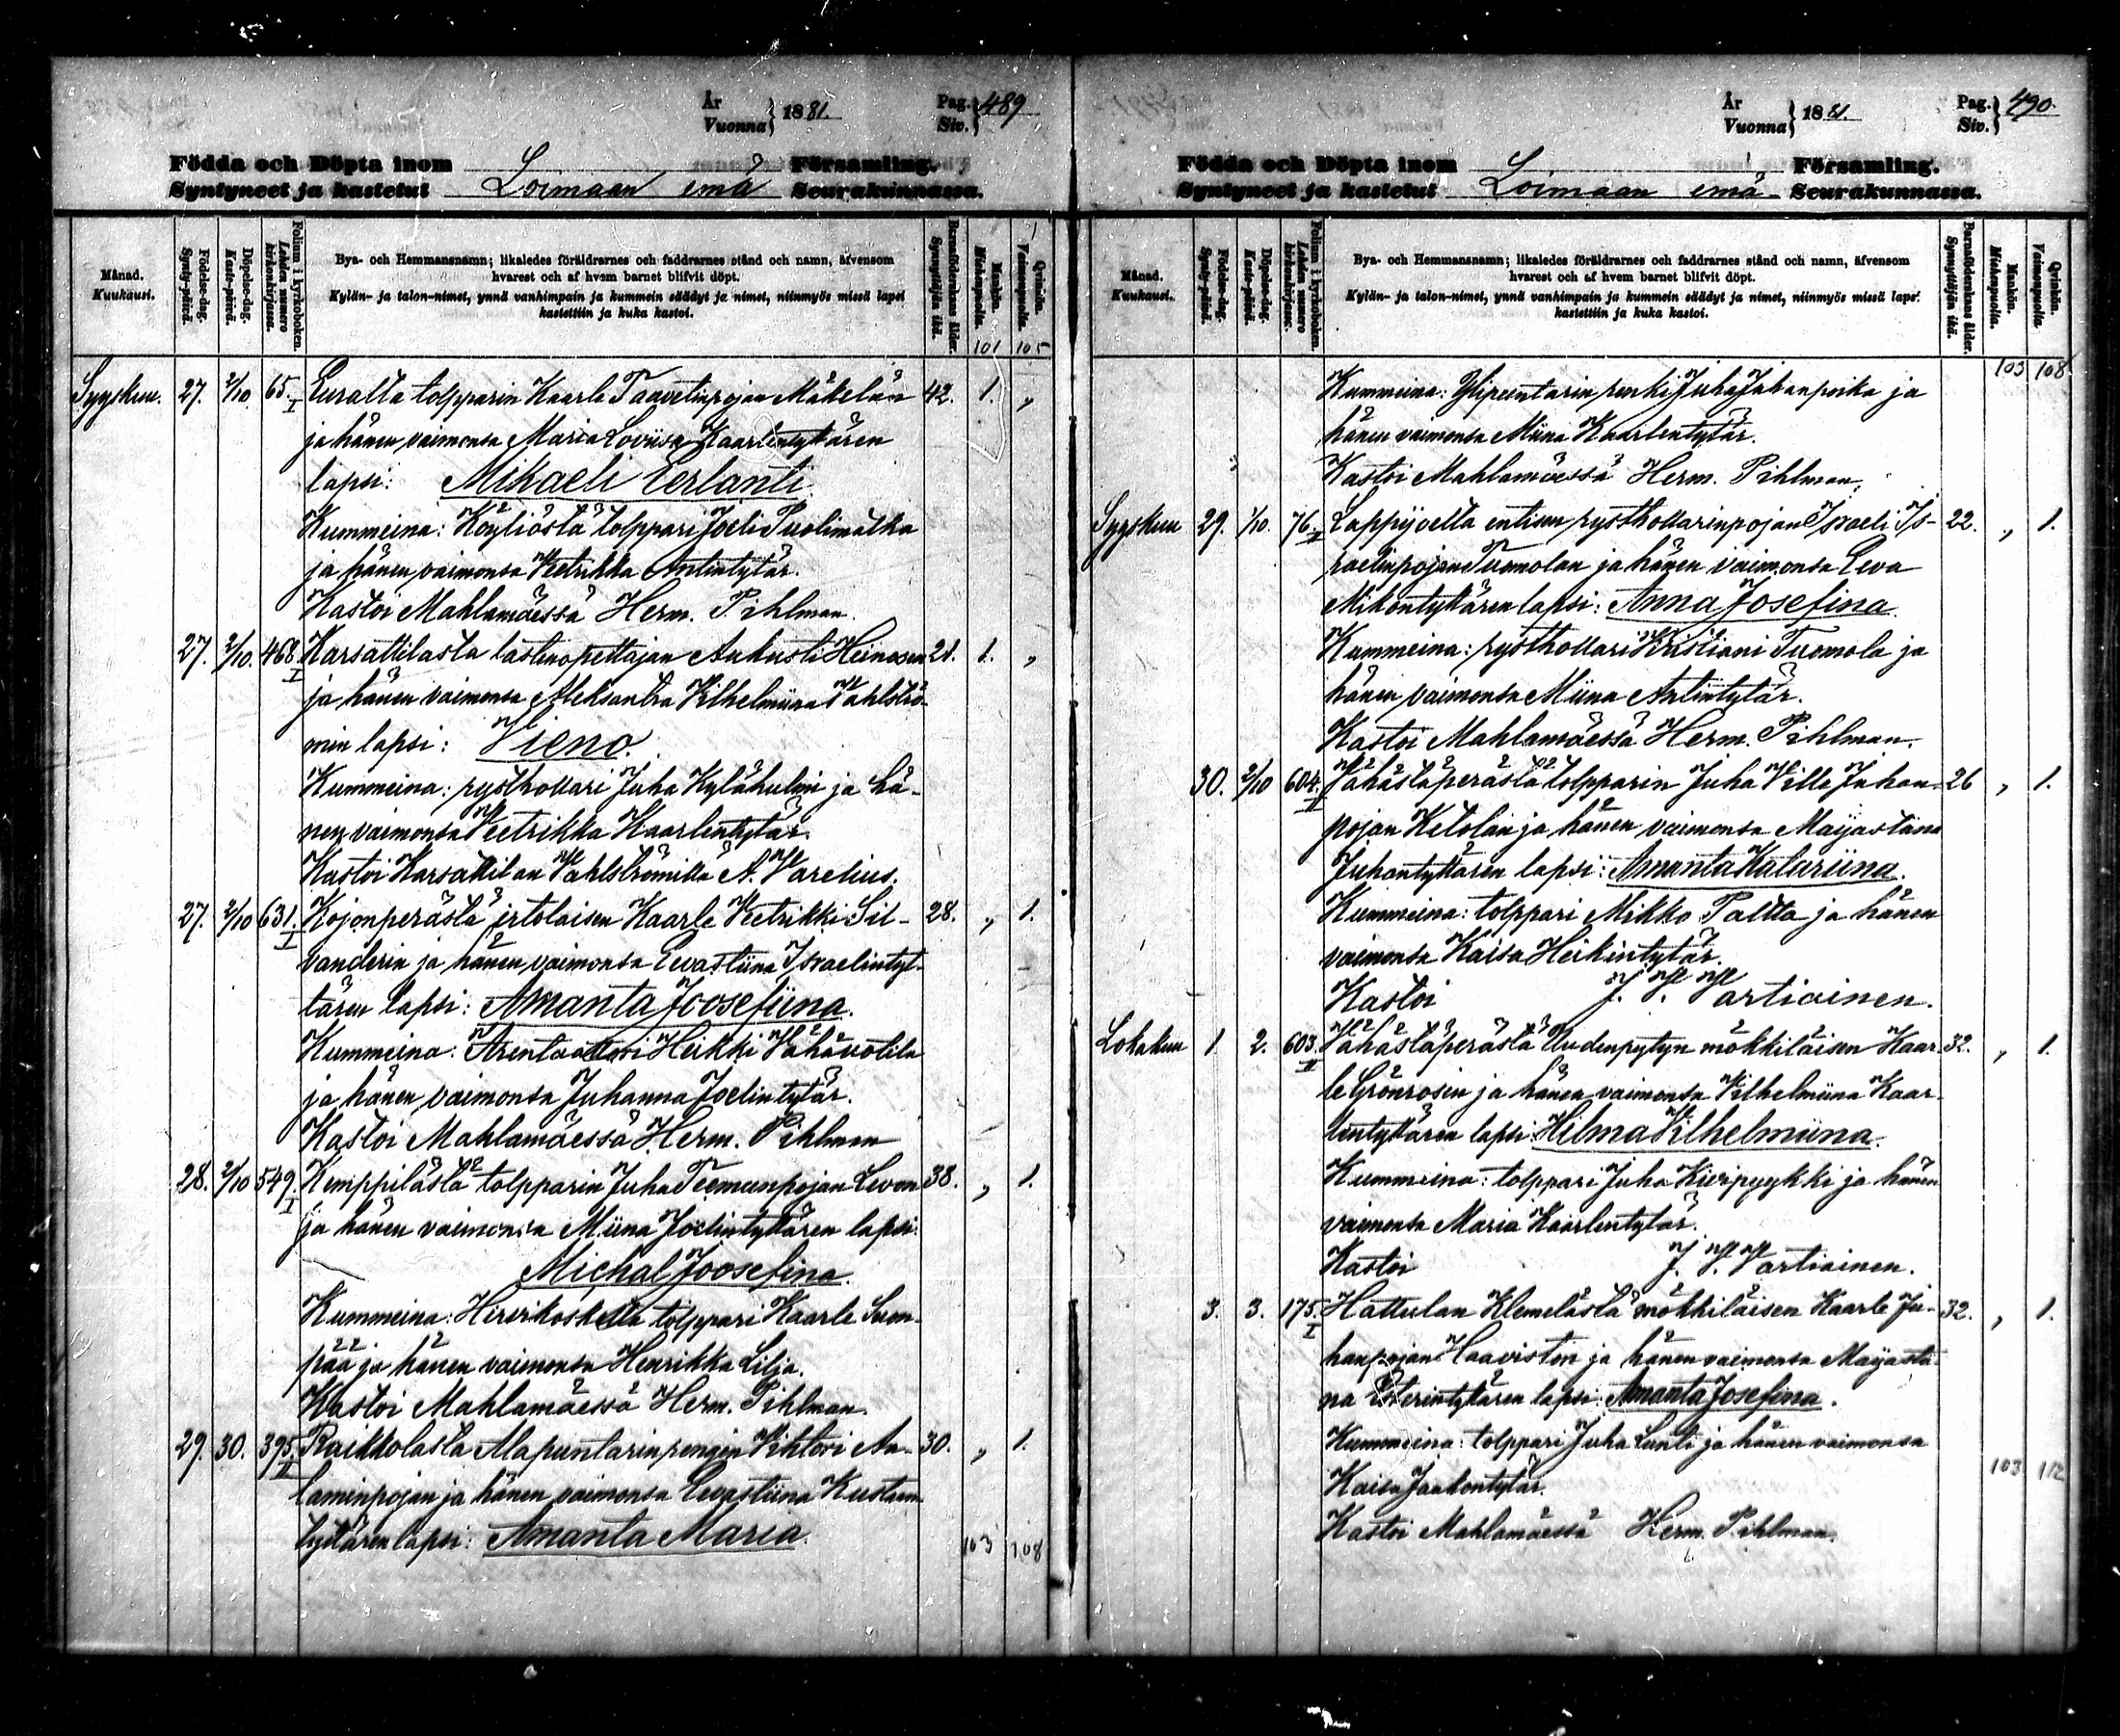 År
Vuonna } 1881.
Pag.
Siv. } 489
Födda och Döpta inom Församling.
Syntyneet ja kastetut Loimaan emä Seurakunnassa.
Månad.
Kuukausi.
Födelse-dag.
Synty-päivä.
Döpelse-dag.
Kaste-päivä.
Folium i kyrkoboken.
Lehden numero kirkonkirjassa.
Bya- och Hemmansnamn; likaledes föräldrarnes och faddrarnes stånd och namn, äfvensom
hvarest och af hvem barnet blifvit döpt.
Kylän- ja talon-nimet, ynnä vanhimpain ja kummein säädyt ja nimet, niinmyös missä lapsi
kastettiin ja kuka kastoi.
Barnaföderskans ålder.
Synnyttäjän ikä.
Mankön.
Miehenpuolta.
Qvinkön.
Vaimonpuolta.
101 105
Syyskuu. 27. 2/10 65. I Euralta tolpparin Kaarle Taavetinpojan Mäkelän 42. 1. „
ja hänen vaimonsa Maria Loviisa Kaarlentyttären
lapsi: Mikaeli Eerlanti
Kummeina: Köyliöstä tolppari Joeli Puolimatka
ja hänen vaimonsa Veetrikka Antintytär.
Kastoi Mahlamäessä Herm. Pihlman.
27. 2/10. 468 I Karsattilasta lastenopettajan Aukusti Heinosen 21. 1. „
ja hänen vaimonsa Aleksantra Vilhelmiina Vahlströ-
min lapsi: Vieno.
Kummeina: rysthollari Juha Kylähulmi ja hä-
nen vaimonsa Veetrikka Kaarlentytär.
Kastoi Karsattilan Vahlströmillä A. Varelius.
27. 2/10 631. I Kojonperästä irtolaisen Kaarle Veetrikki Sil- 28. „ 1.
vanderin ja hänen vaimonsa Eevastiina Israelintyt-
tären lapsi: Amanta Joosefiina.
Kummeina: Arentaattori Heikki Vähäuotila
ja hänen vaimonsa Juhanna Joelintytär.
Kastoi Mahlamäessä Herm. Pihlman
28. 2/10 549. I Kemppilästä tolpparin Juha Teemunpojan Levon 38. „ 1.
ja hänen vaimonsa Miina Joelintyttären lapsi:
Michal Joosefina
Kummeina: Hirvikoskelta tolppari Kaarle Suon-
pää ja hänen vaimonsa Henrikka Lilja.
Kastoi Mahlamäessä Herm. Pihlman.
29. 30. 395. II Raikkolasta Alapuntarin rengin Vihtori Aa- 30. „ 1.
taminpojan ja hänen vaimonsa Eevastiina Kustaan-
tyttären lapsi: Amanta Maria.
103 108
År
Vuonna } 1881.
Pag.
Siv. } 490.
Födda och Döpta inom Församling.
Syntyneet ja kastetut Loimaan emä Seurakunnassa.
Månad.
Kuukausi.
Födelse-dag.
Synty-päivä.
Döpelse-dag.
Kaste-päivä.
Folium i kyrkoboken.
Lehden numero kirkonkirjassa.
Bya- och Hemmansnamn; likaledes föräldrarnes och faddrarnes stånd och namn, äfvensom
hvarest och af hvem barnet blifvit döpt.
Kylän- ja talon-nimet, ynnä vanhimpain ja kummein säädyt ja nimet, niinmyös missä lapsi
kastettiin ja kuka kastoi.
Barnaföderskans ålder.
Synnyttäjän ikä.
Mankön.
Miehenpuolta.
Qvinkön.
Vaimonpuolta.
103 108
Kummeina: Ylipuntarin renki Juha Juhanpoika ja
hänen vaimonsa Miina Kaarlentytär.
Kastoi Mahlamäessä Herm. Pihlman.
Syyskuu 29. 1/10. 76. II Lappijoelta entisen rysthollarinpojan Israeli Is- 22. „ 1.
raelinpojan Tuomolan ja hänen vaimonsa Eeva
Mikontyttären lapsi: Anna Josefina.
Kummeina: rysthollari Kristiani Tuomola ja
hänen vaimonsa Miina Antintytär.
Kastoi Mahlamäessä Herm. Pihlman.
30. 2/10 604. II Vähästäperästä tolpparin Juha Ville Juhan- 26 „ 1.
pojan Ketolan ja hänen vaimonsa Maijastiina
Juhontyttären lapsi: Amanta Katariina.
Kummeina: tolppari Mikko Paltta ja hänen
vaimonsa Kaisa Heikintytär.
Kastoi J. V. Vartiainen.
Lokakuu 1. 2. 603. II Vähästäperästä Uudenpytyn mökkiläisen Kaar- 32. „ 1.
le Grönrosin ja hänen vaimonsa Vilhelmiina Kaar-
lentyttären lapsi: Hilma Vilhelmiina.
Kummeina: tolppari Juha Kierpyykki ja hänen
vaimonsa Maria Kaarlentytär.
Kastoi J. V. Vartiainen.
3. 3. 175. I Hattulan Klemelästä mökkiläisen Kaarle Ju- 32. „ 1.
hanpojan Haaviston ja hänen vaimonsa Maijastii-
na lapsi: Amanta Josefina.
Kummeina: tolppari Juha Lunti ja hänen vaimonsa
Kaisa Jaakontytär.
103 112
Kastoi Mahlamäessä Herm. Pihlman.